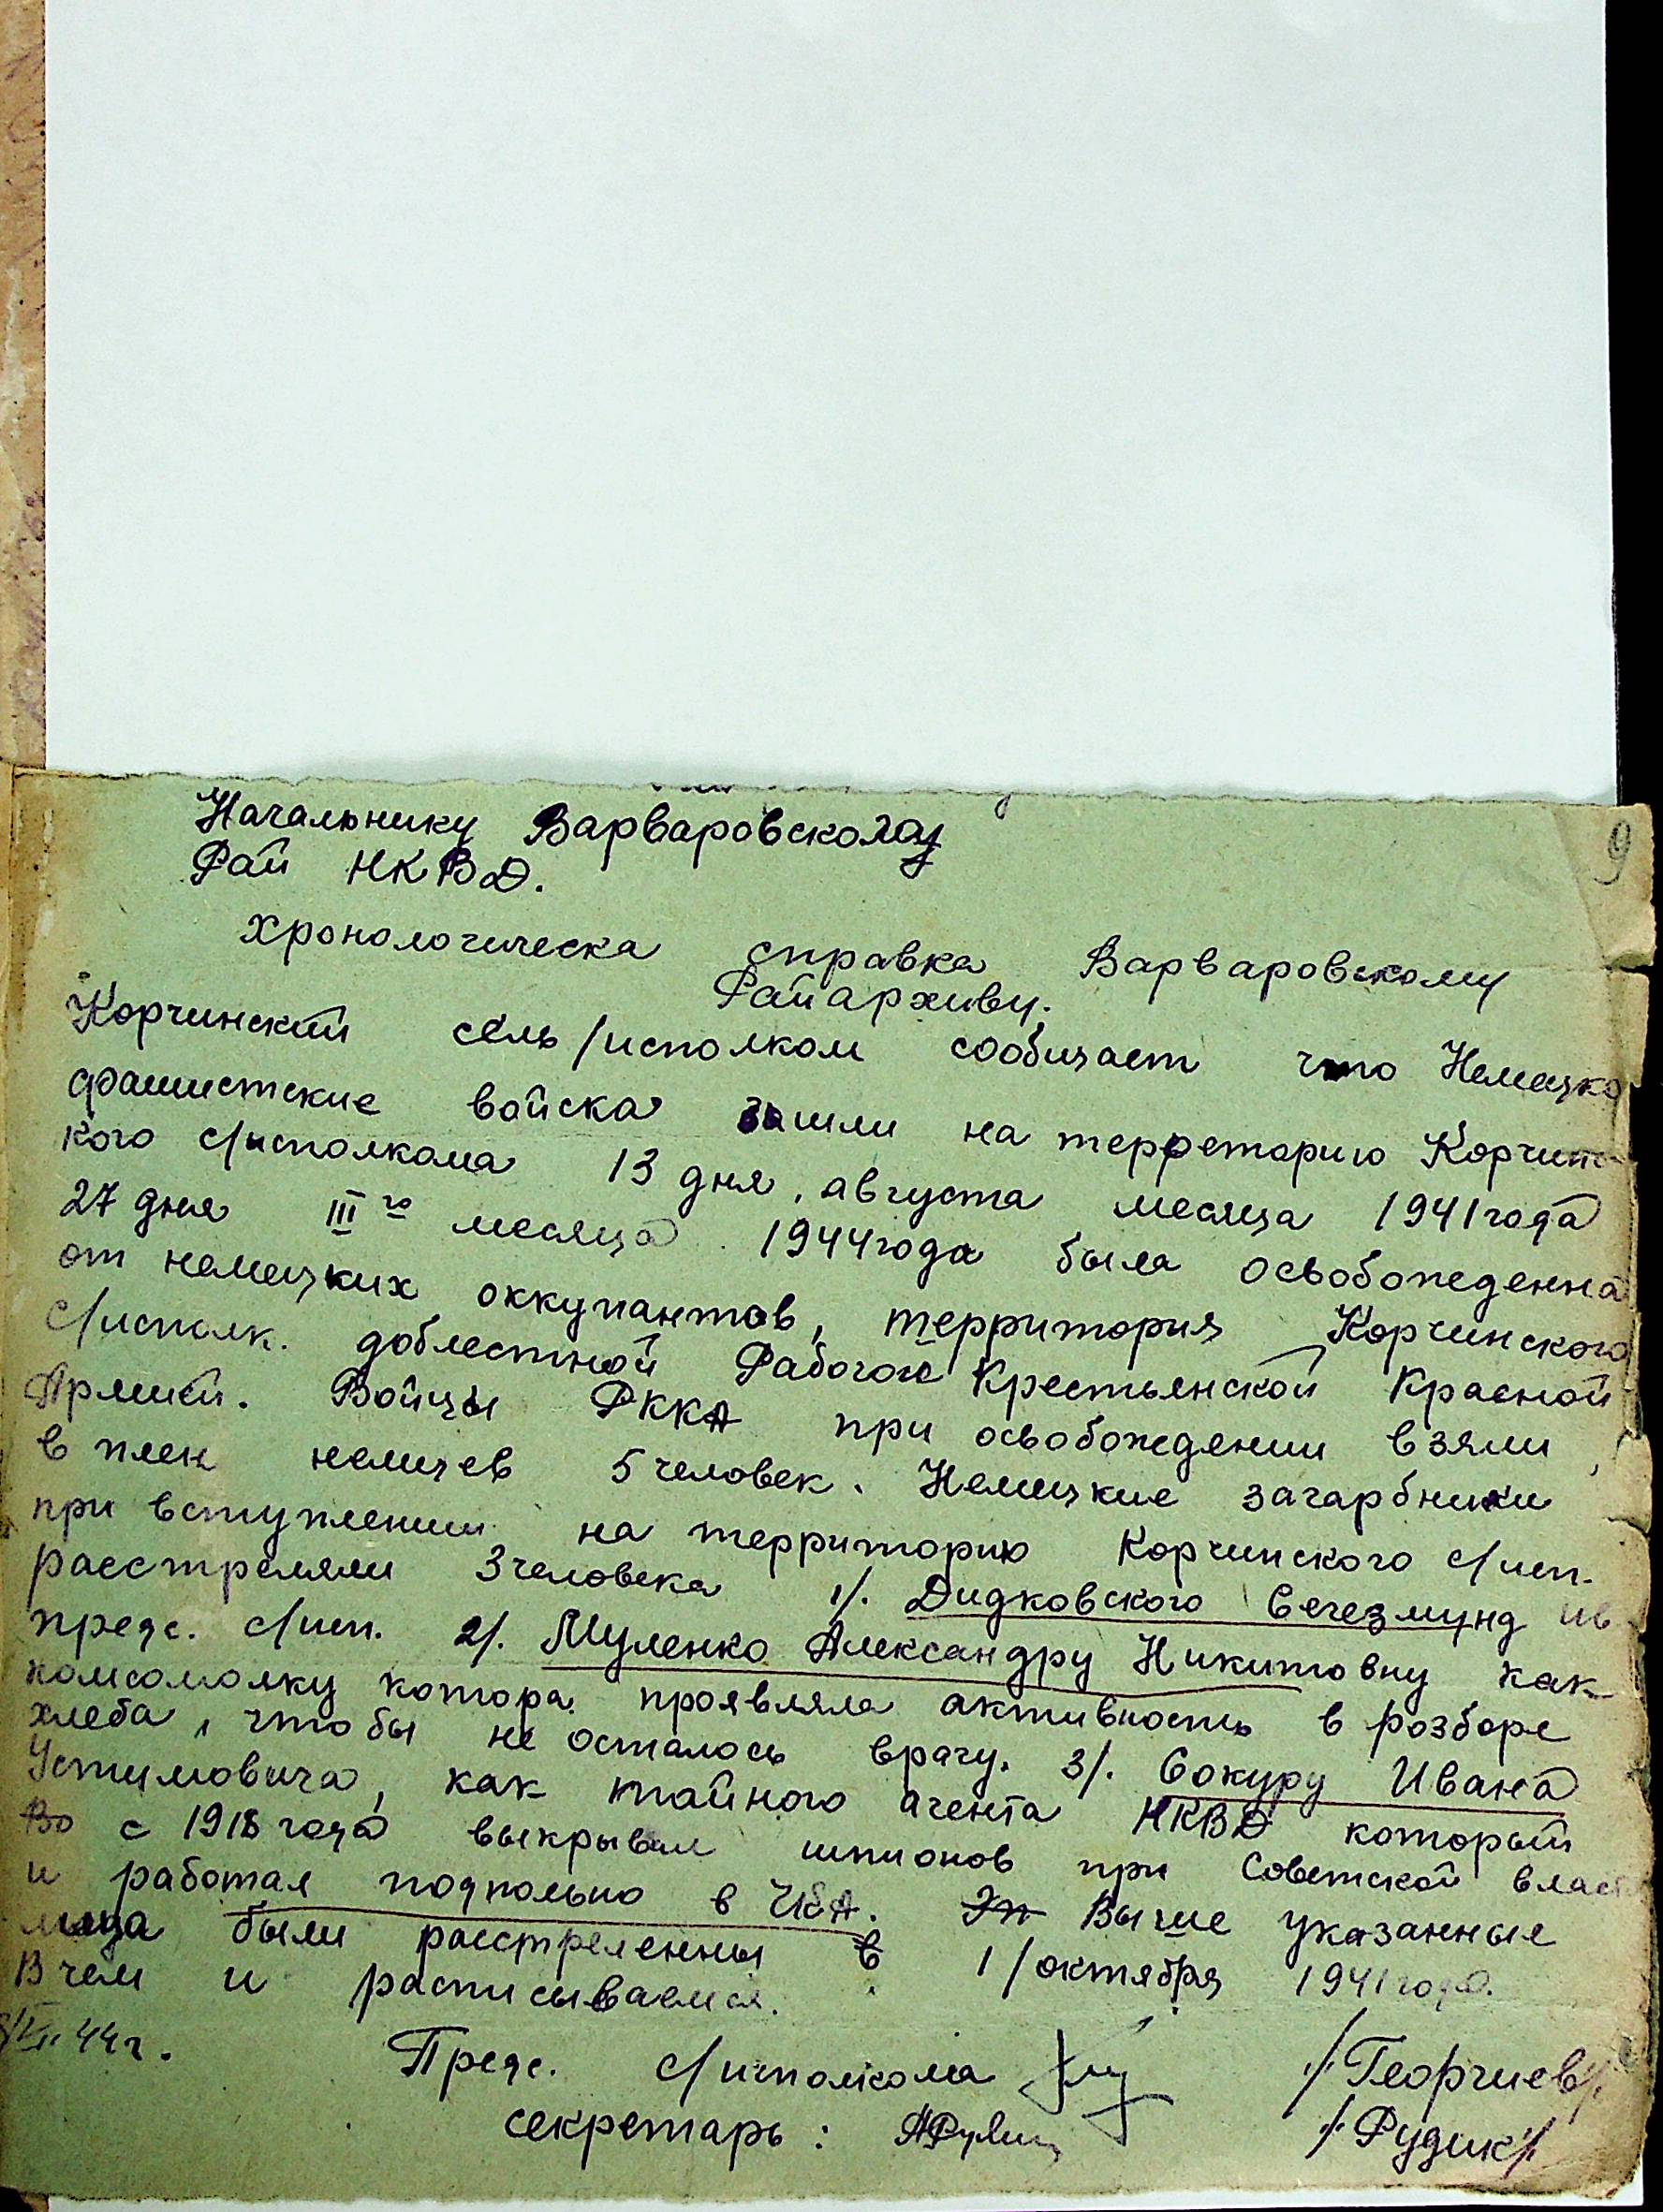 9
Начальнику Варваровскому
Рай НКВД.
Хронологическа справка Варваровскому
Райархиву.
Корчинский сель/исполком сообщает что Немецко
фашистские войска зашли на терреторию Корчинс
кого с/исполкома 13 дня, августа месяца 1941 года
27 дня III го месяца 1944 года была освобожденна
от немецких оккупантов, территория Корчинского
с/исполк. доблестной Рабочой Крестьянской Красной
Армией. Войцы РККА при освобождении взяли
в плен немцев 5 человек. Немецкие загарбники
при вступлении на территорию Корчинского с/исп.
расстреляли 3 человека 1/. Дидковского Сегезмунд
предс. с/исп. 2/. Муленко Александру Никитовну как
комсомолку котора проявляла активность в розборе
хлеба, что бы не осталось врагу. 3/. Сокуру Ивана
Устимовича, как тайного агента НКВД который
Во с 1918 года выкрывал шпионов при Советской власти
и работал подпольно в . Эт Выше указанные
лица были расстреленны в 1/октября 1941 года.
В чем и расписываемся.
44 г.
Предс. с/исполкома /Георгиев/
секретарь: /Рудик/